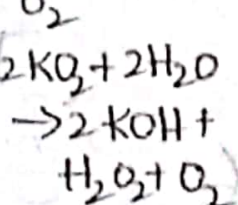 O₂
2KO₂+2H₂O
→2KOH+
H₂O₂+O₂